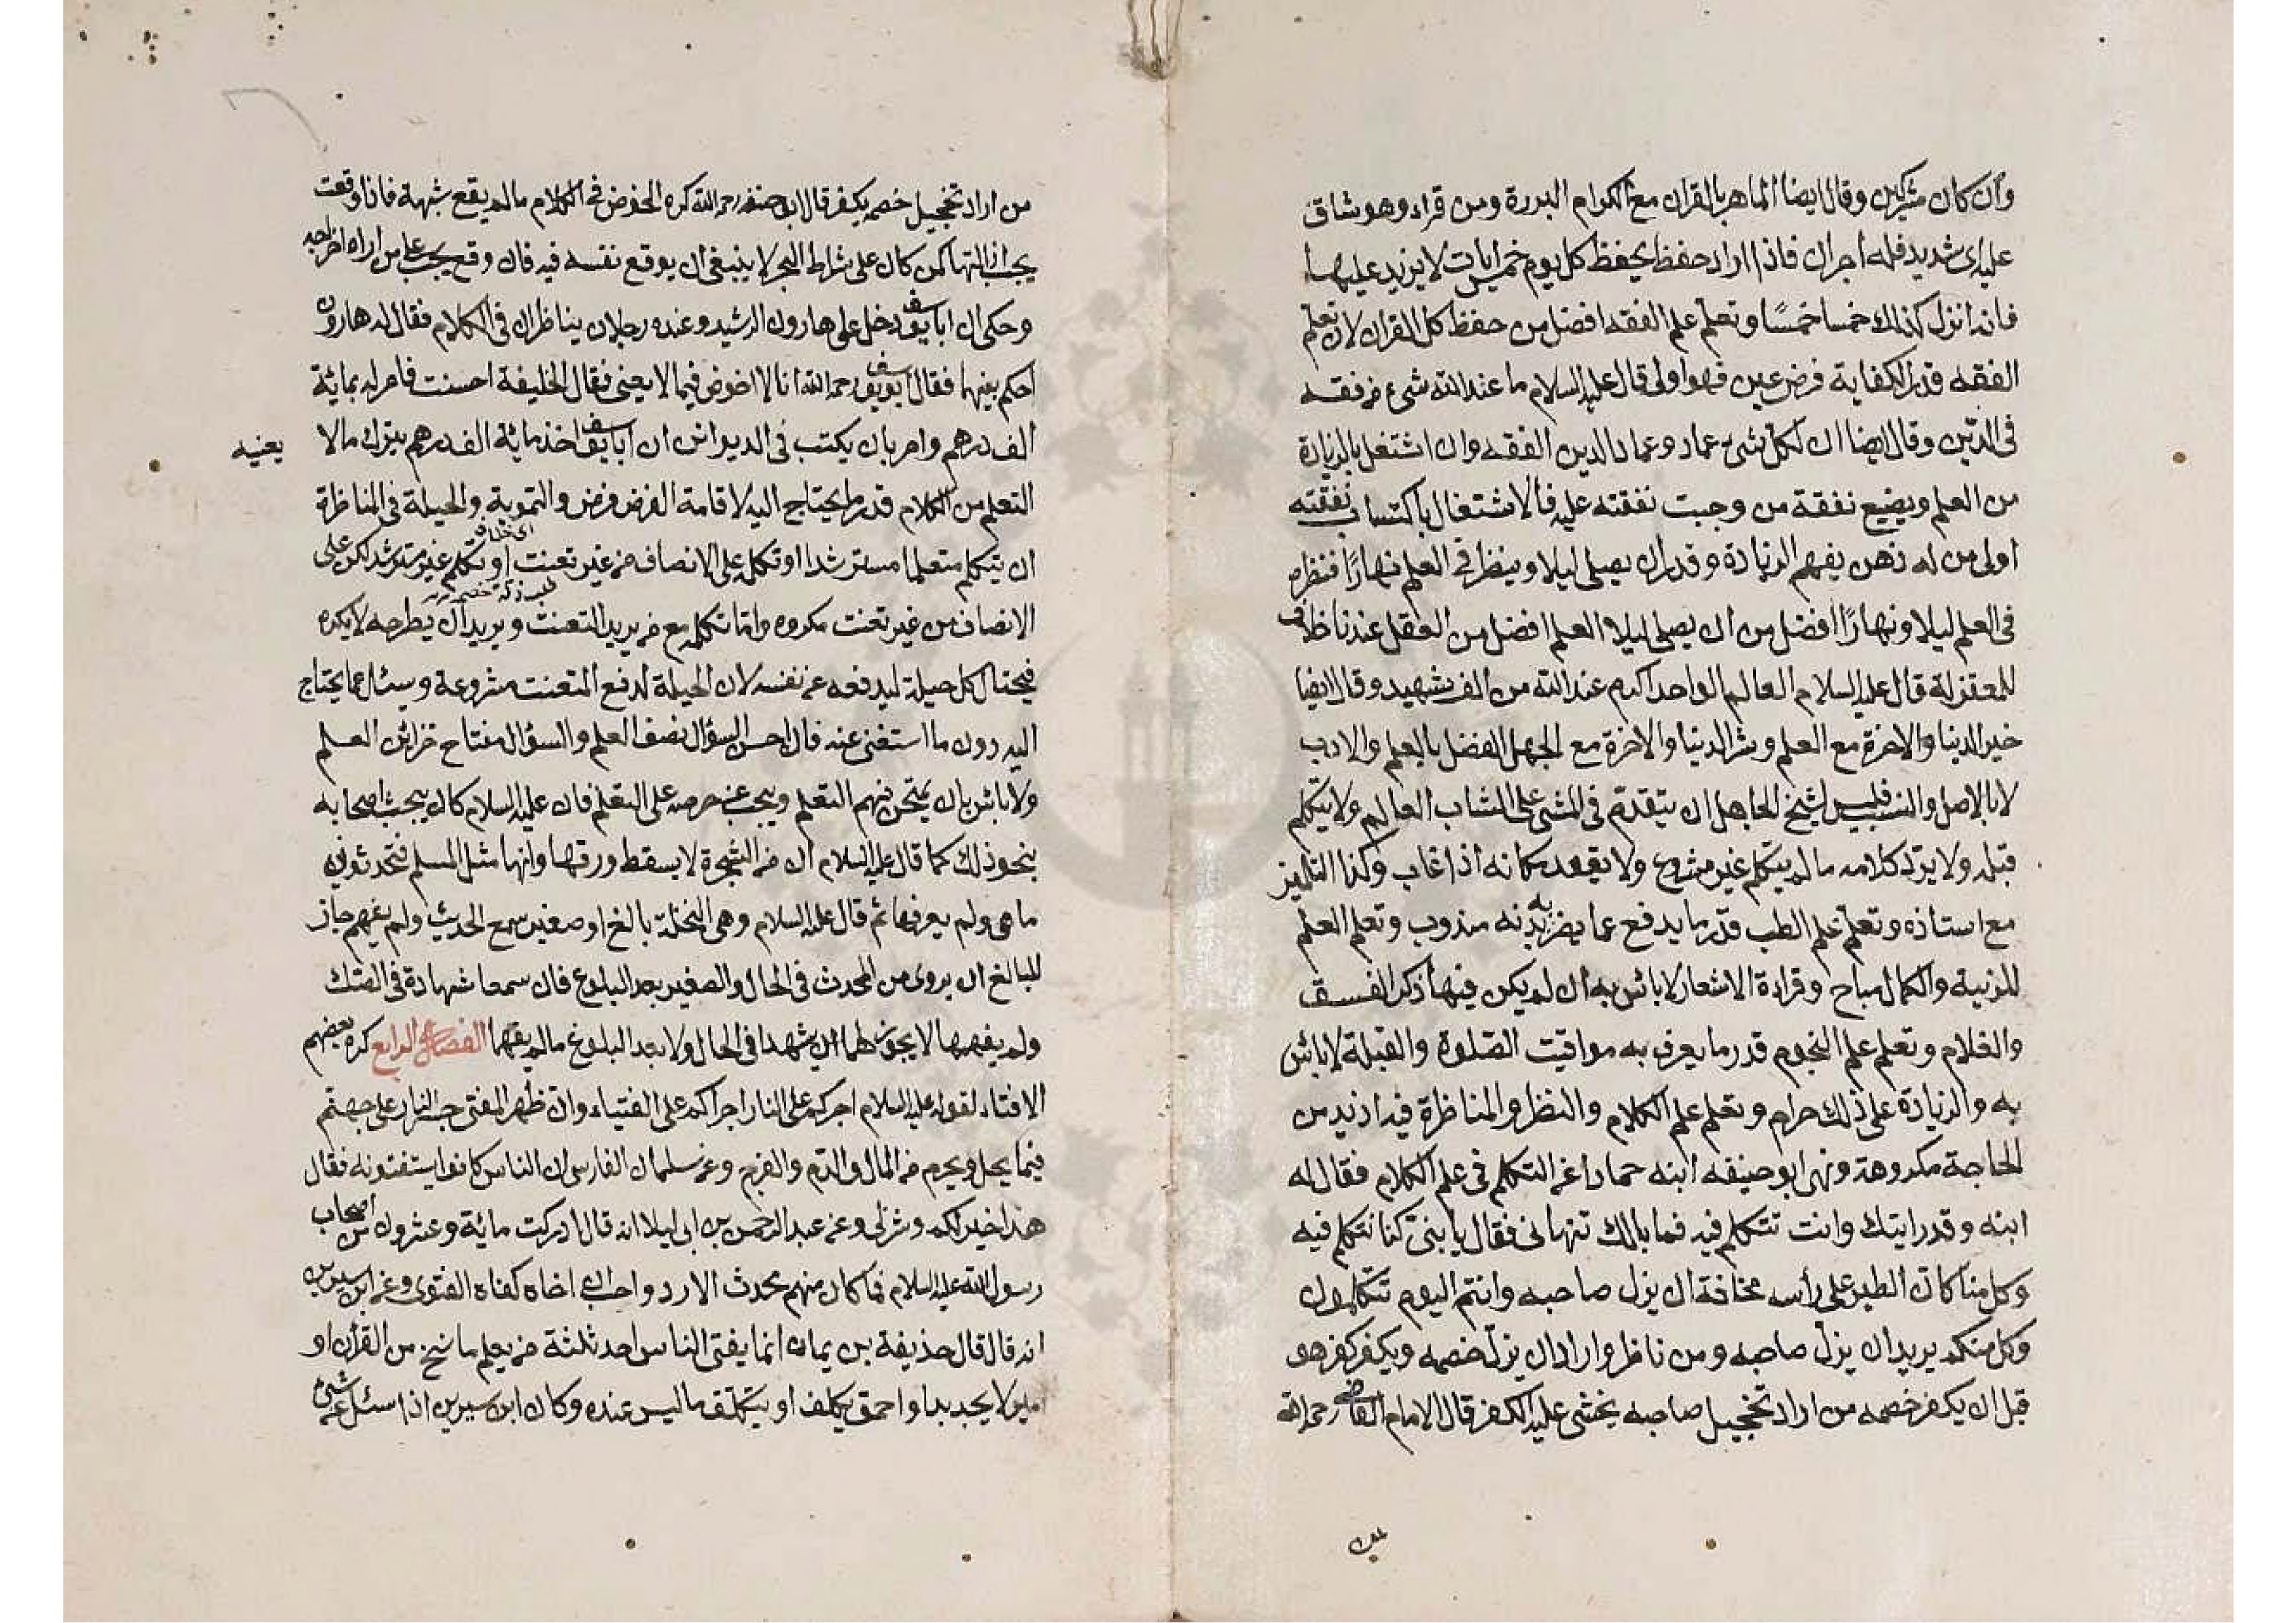 وان كان مشركين وقال ايضا الماهر بالقران مع الكرام البررة ومن قراه وهو شاق
عليه اى شديد فله اجران فاذا اراد حفظ يحفظ كل يوم خمس ايات لا يزيد عليها
فانه انزل كذلك خمسا خمسًا وتعلم علم الفقه افضل من حفظ كل القران لان تعلم
الفقه قدر الكفاية فرض عين فهو اولى قال عليه السلام ما عند الله شىء من فقه
فى الدين وقال ايضا ان لكل شىء عماد وعماد الدين الفقه وان اشتغل بالزيادة
من العلم ويضيع نفقة من وجبت نفقته عليه فالاشتغال باكتساب نفقته
اولى من له ذهن يفهم الزيادة وقدر ان يصلى ليلا وينظر فى العلم نهارًا فنظره
فى العلم ليلا ونهارًا افضل من ان يصلى ليلا العلم افضل من العقل عندنا خلاف
للمعتزلة قال عليه السلام العالم الواحد اكرم عند الله من الف شهيد وقال ايضا
خير الدنيا والاخرة مع العلم وشر الدنيا والاخرة مع الجهل الفضل بالعلم والادب
لا بالاصل والنسب فليس لشيخ الجاهل ان يتقدم فى المشى على الشاب العالم ولا يتكلم
قبله ولا يرد كلامه ما لم يتكلم غير مشروع ولا يقعد مكانه اذا غاب وكذا التلميذ
مع استاذه وتعلم علم الطب قدر ما يدفع عما يضر به بدنه مندوب وتعلم العلم
للزنية والكمال مباح وقراءة الاشعار لا باس به ان لم يكن فيها ذكر الفسق
والغلام وتعلم علم النجوم قدر ما يعرف به مواقيت الصلوة والقبلة لا باس
به والزيادة على ذلك حرام وتعلم علم الكلام والنظر والمناظرة فيه ازيد من
الحاجة مكروهة ونهى ابو حنيفه ابنه حمادا عن التكلم فى علم الكلام فقال له
ابنه وقد رايتك وانت تتكلم فيه فما بالك تنهانى فقال يا بنى كنا نتكلم فيه
وكل منا كان الطير على رأسه مخافة ان يزل صاحبه وانتم اليوم تتكلمون
وكل منكم يريد ان يزل صاحبه ومن ناظر واراد ان يزل خصمه ويكفر كفر هو
قبل ان يكفر خصمه من اراد تخجيل صاحبه يخشى عليه الكفر قال الامام القاضى رحمه الله
من اراد تخجيل خصمه يكفر قال ابو حنيفه رحمه الله كره الخوض فى الكلام ما لم يقع شبهة فاذا وقعت
يجب ازالتها كمن كان على شراط البحر لا ينبغى ان يوقع نفسه فيه فان وقع يجب على من اراه اخراجه
وحكى ان ابا يوسف دخل على هارون الرشيد وعنده رجلان يناظران فى الكلام فقال له هارون
احكم بينهما فقال ابو يوسف رحمه الله انا لا اخوض فيما لا يعنى فقال الخليفة احسنت فامر له بمائة
الف درهم وامر بان يكتب فى الديوان ان ابا يوسف اخذ مائة الف درهم بترك ما لا
يعنيه
التعلم من الكلام قدر ما يحتاج اليه لاقامة الفرض فرض والتموية والحيلة فى المناظرة
ان يتكلم متعلما مسترشدا او تكلم على الانصاف من غير تعنت او تكلم غير مسترشد لكن على
الانصاف من غير تعنت مكروه واما تكلم مع من يريد التعنت ويريد ان يطرحه لا يكره
فيحتال كل حيلة ليدفعه عن نفسه لان الحيلة لدفع المتعنت مشروعة ويسئل عما يحتاج
اليه دون ما استغنى عنه فان احسن السؤال نصف العلم والسؤال مفتاح خزائن العلم
ولا باس بان يمتحن فهم التعلم ويجب عن حرصه على التعلم فان عليه السلام كان يجب اصحابه
بنحو ذلك كما قال عليه السلام ان من الشجرة لا يسقط ورقها وانها مثل المسلم فتحدثونى
ما هى ولم يعرفها ثم قال عليه السلام وهى النخلة بالغ او صغير سمع الحديث ولم يفهم جاز
للبالغ ان يروى من المحدث فى الحال والصغير بعد البلوغ فان سمعا شهادة فى الصك
ولم يفهمها لا يجوز لهما ان يشهدا فى الحال ولا بعد البلوغ ما لم يفهما الفصل الرابع كره بعضهم
الافتاء لقوله عليه السلام اجركم على النار اجراكم على الفتياء وان ظهر المفتى جسر النار على جهنم
فيما يحل ويحرم من المال والدم والفرج وعن سلمان الفارسى ان الناس كانوا يستفتونه فقال
هذا خير لكم وشر لى وعن عبد الرحمن بن ابى ليلا انه قال ادركت مائة وعشرون من اصحاب
رسول الله عليه السلام فما كان منهم محدث الا ود واحب اخاه كفاه الفتوى وعن ابن سيرين
انه قال قال حذيفة بن يمان انما يفتى الناس احد ثلثة من يعلم ما نسخ من القرأن او
امير لا يجد بدا واحمق يكلف او يتكلف ما ليس عنده وكان ابن سيرين اذا سئل عن شىء